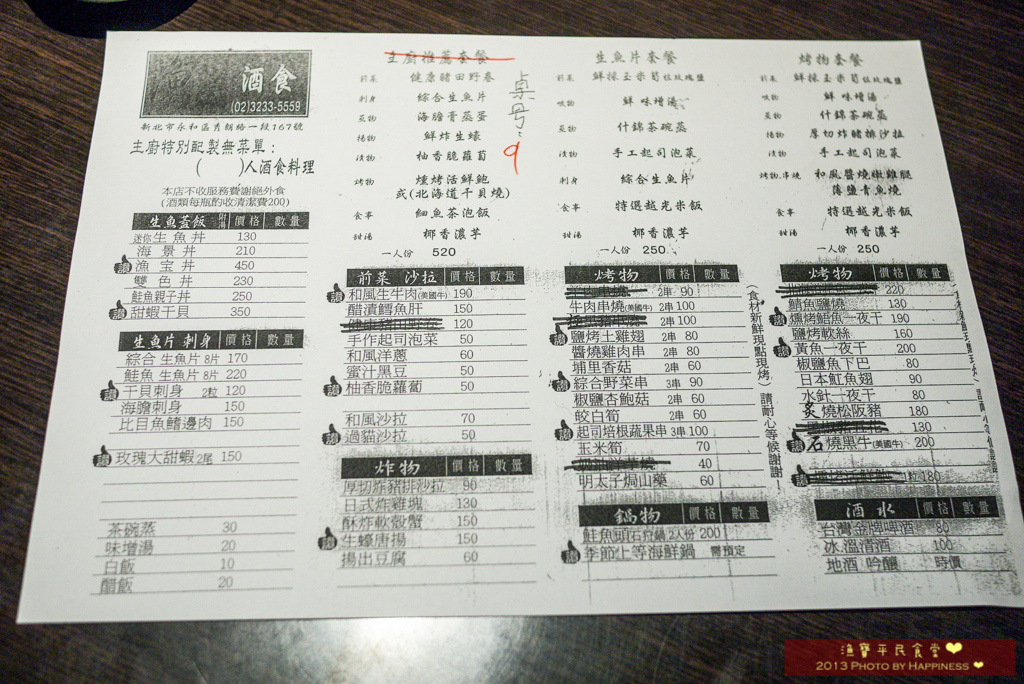 酒食
(02)3233-5559
新北市永和區秀朗路一段167號
主廚特別配製無菜單：
( )人酒食料理
本店不收服務費謝絕外食
(酒類每瓶酌收清潔費200)
生魚蓋飯 附湯 價格 數量
迷你生魚丼 130
海景丼 210
漁宝丼 450
雙色丼 230
鮭魚親子丼 250
讚 甜蝦干貝 350
生魚片 刺身 價格 數量
綜合生魚片8片 170
鮭魚生魚片8片 220
讚 干貝刺身 2粒 120
海膽刺身 150
比目魚鰭邊肉 150
讚 玫瑰大甜蝦2尾 150
茶碗蒸 30
味增湯 20
白飯 10
醋飯 20
主廚推薦套餐
前菜 健康豬田野卷
刺身 綜合生魚片
蒸物 海膽膏蒸蛋
揚物 鮮炸生蠔
漬物 柚香脆蘿蔔
烤物 爐烤活鮮鮑
或(北海道干貝燒)
食事 細魚茶泡飯
甜湯 椰香濃芋
一人份 520
桌号：9
前菜 沙拉 價格 數量
讚 和風生牛肉(美國牛) 190
醋漬鱈魚肝 150
120
手作起司泡菜 50
和風洋蔥 60
蜜汁黑豆 50
讚 柚香脆蘿蔔 50
和風沙拉 70
讚 過貓沙拉 50
炸物 價格 數量
厚切炸豬排沙拉 90
日式炸雞塊 130
酥炸軟殼蟹 150
讚 生蠔唐揚 150
揚出豆腐 60
生魚片套餐
前菜 鮮採玉米筍佐玫瑰鹽
吸物 鮮味增湯
蒸物 什錦茶碗蒸
漬物 手工起司泡菜
刺身 綜合生魚片
食事 特選越光米飯
甜湯 椰香濃芋
一人份 250
烤物 價格 數量
2串 90
牛肉串燒(美國牛) 2串 100
2串 100
讚 鹽烤土雞翅 2串 80
醬燒雞肉串 2串 80
埔里香菇 2串 60
讚 綜合野菜串 3串 90
椒鹽杏鮑菇 2串 60
鮫白筍 2串 60
讚 起司培根蔬果串 3串 100
玉米筍 70
40
明太子焗山藥 60
(食材新鮮現點現烤)請耐心等候謝謝
鍋物 價格 數量
鮭魚頭石狩鍋2人份 200
讚 季節上等海鮮鍋 需預定
烤物套餐
前菜 鮮採玉米筍佐玫瑰鹽
吸物 鮮味增湯
蒸物 什錦茶碗蒸
揚物 厚切炸豬排沙拉
漬物 手工起司泡菜
烤物,串燒 和風醬燒嫩雞腿
薄鹽青魚燒
食事 特選越光米飯
甜湯 椰香濃芋
一人份 250
烤物 價格 數量
讚 220
鯖魚鹽燒 130
讚 爐烤鮭魚一夜干 190
鹽烤軟絲 160
讚 黃魚一夜干 200
椒鹽魚下巴 80
日本魟魚翅 90
水針一夜干 80
炙燒松阪豬 180
130
讚 石燒黑牛(美國牛) 200
讚 1粒180
酒水 價格 數量
台灣金牌啤酒 80
冰.溫清酒 100
地酒 吟釀 時價
漁寶平民食堂
2013 Photo by Happiness